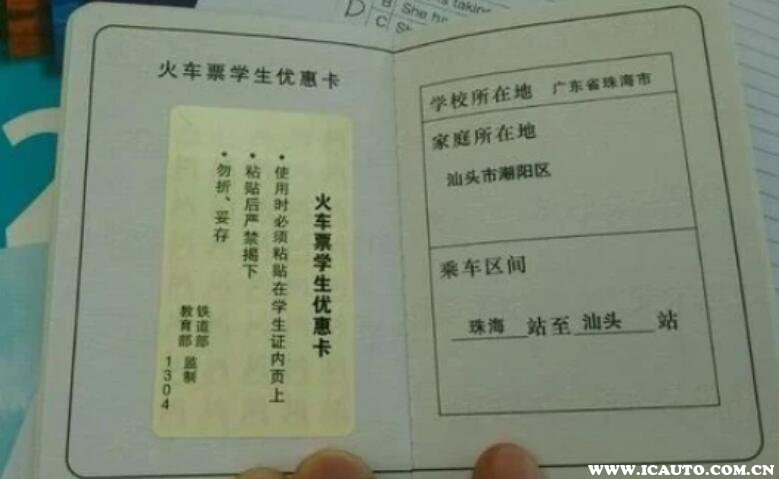 D
B She ha
is taking
C Sh
火车票学生优惠卡
火车票学生优惠卡
• 使用时必须粘贴在学生证内页上
• 粘贴后严禁揭下
• 勿折、妥存
铁道部
教育部 监制
1304
学校所在地 广东省珠海市
家庭所在地
汕头市潮阳区
乘车区间
珠海 站至 汕头 站
www.icauto.com.cn